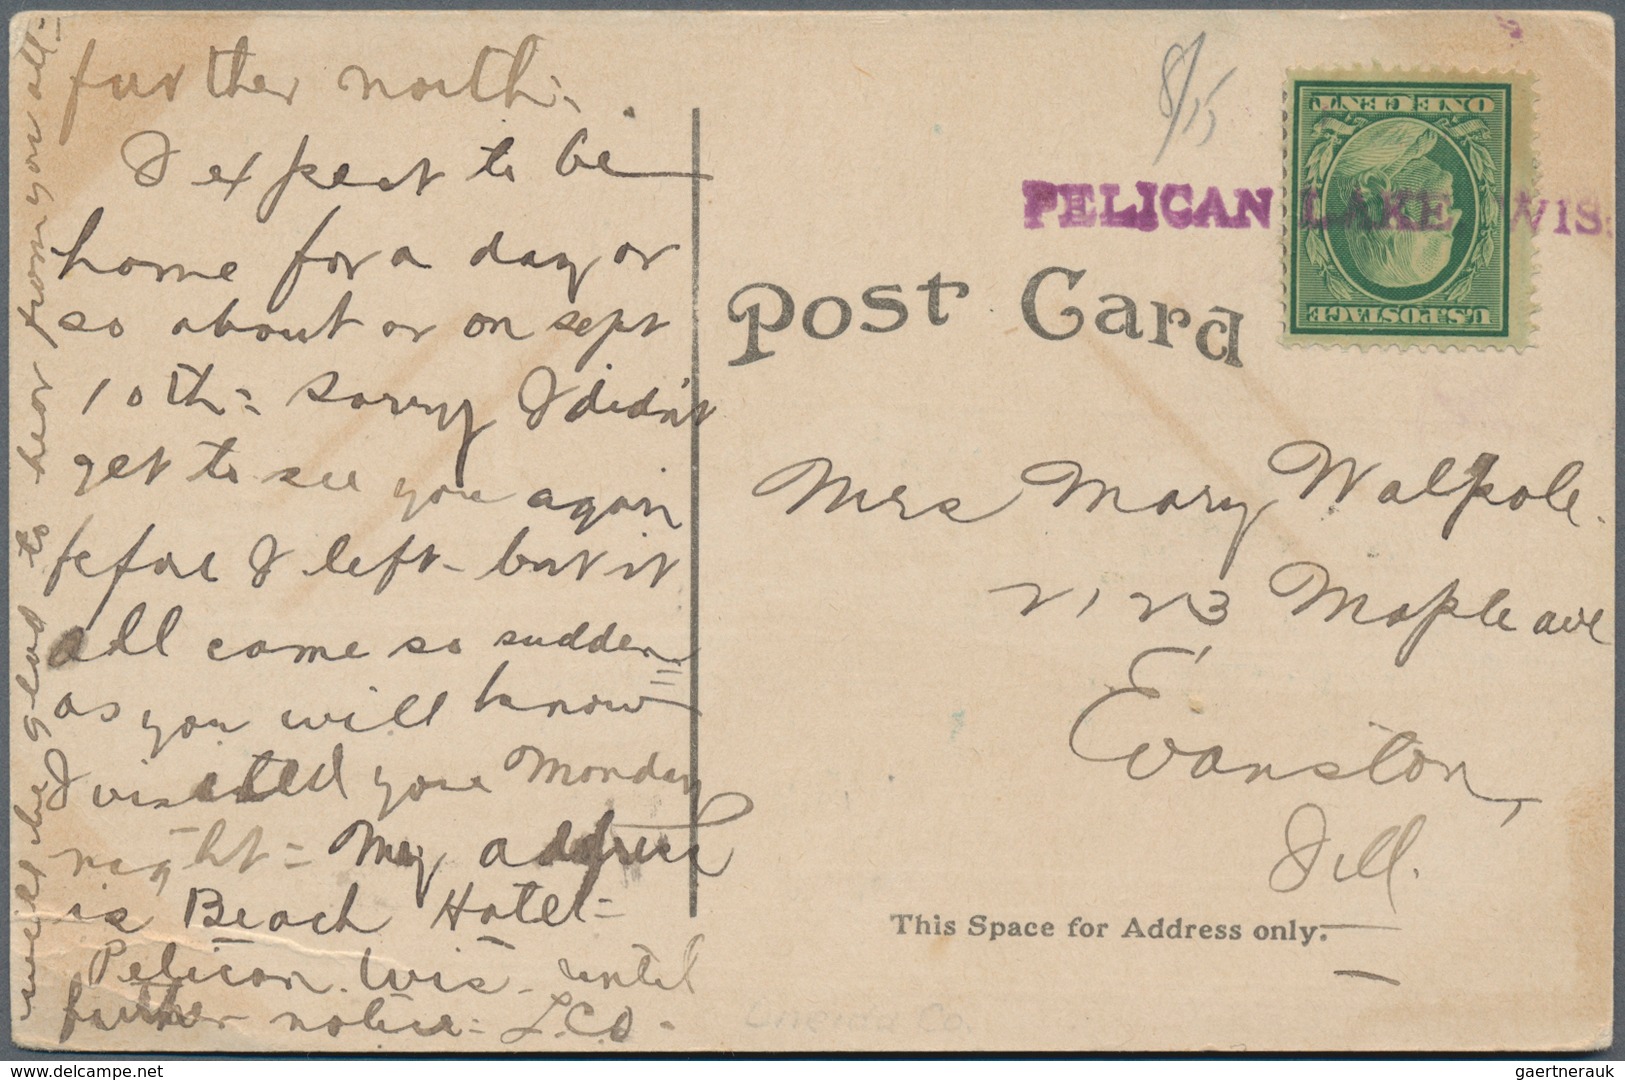 further north -
I expect to be
home for a day or
so about or on sept
10th = Sorry I didn't
get to see you again
before I left - but it
all came so sudden
as you will know
I visited your Monday
night = My address
is Beach Hotel =
Pelican. Wis - until
further notice = L.C.O -
will be glad to hear from you all -
8/15
PELICAN LAKE, WIS.
ONE CENT
U.S. POSTAGE
Post Card
Mrs Mary Walpole.
2123 Maple ave
Evanston,
Ill.
This Space for Address only.
Oneida Co.
www.delcampe.net
gaertnerauk